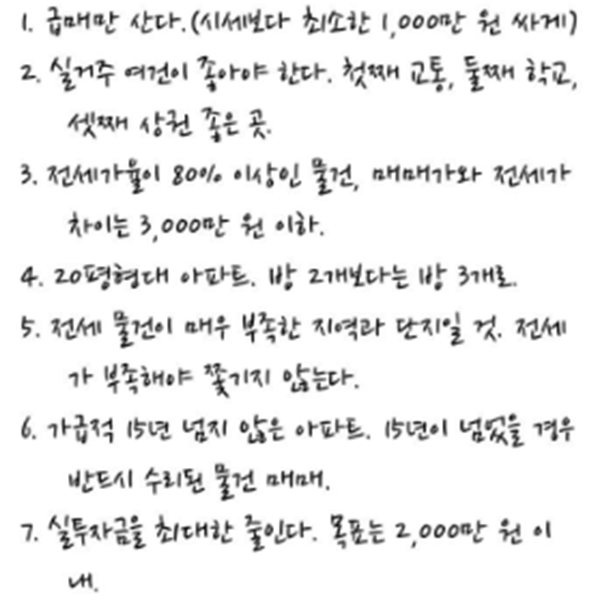 1. 급매만 산다.(시세보다 최소한 1,000만 원 싸게)
2. 실거주 여건이 좋아야 한다. 첫째 교통, 둘째 학교,
셋째 상권 좋은 곳.
3. 전세가율이 80% 이상인 물건, 매매가와 전세가
차이는 3,000만 원 이하.
4. 20평형대 아파트. 방 2개보다는 방 3개로.
5. 전세 물건이 매우 부족한 지역과 단지일 것. 전세
가 부족해야 쫓기지 않는다.
6. 가급적 15년 넘지 않은 아파트. 15년이 넘었을 경우
반드시 수리된 물건 매매.
7. 실투자금을 최대한 줄인다. 목표는 2,000만 원 이
내.